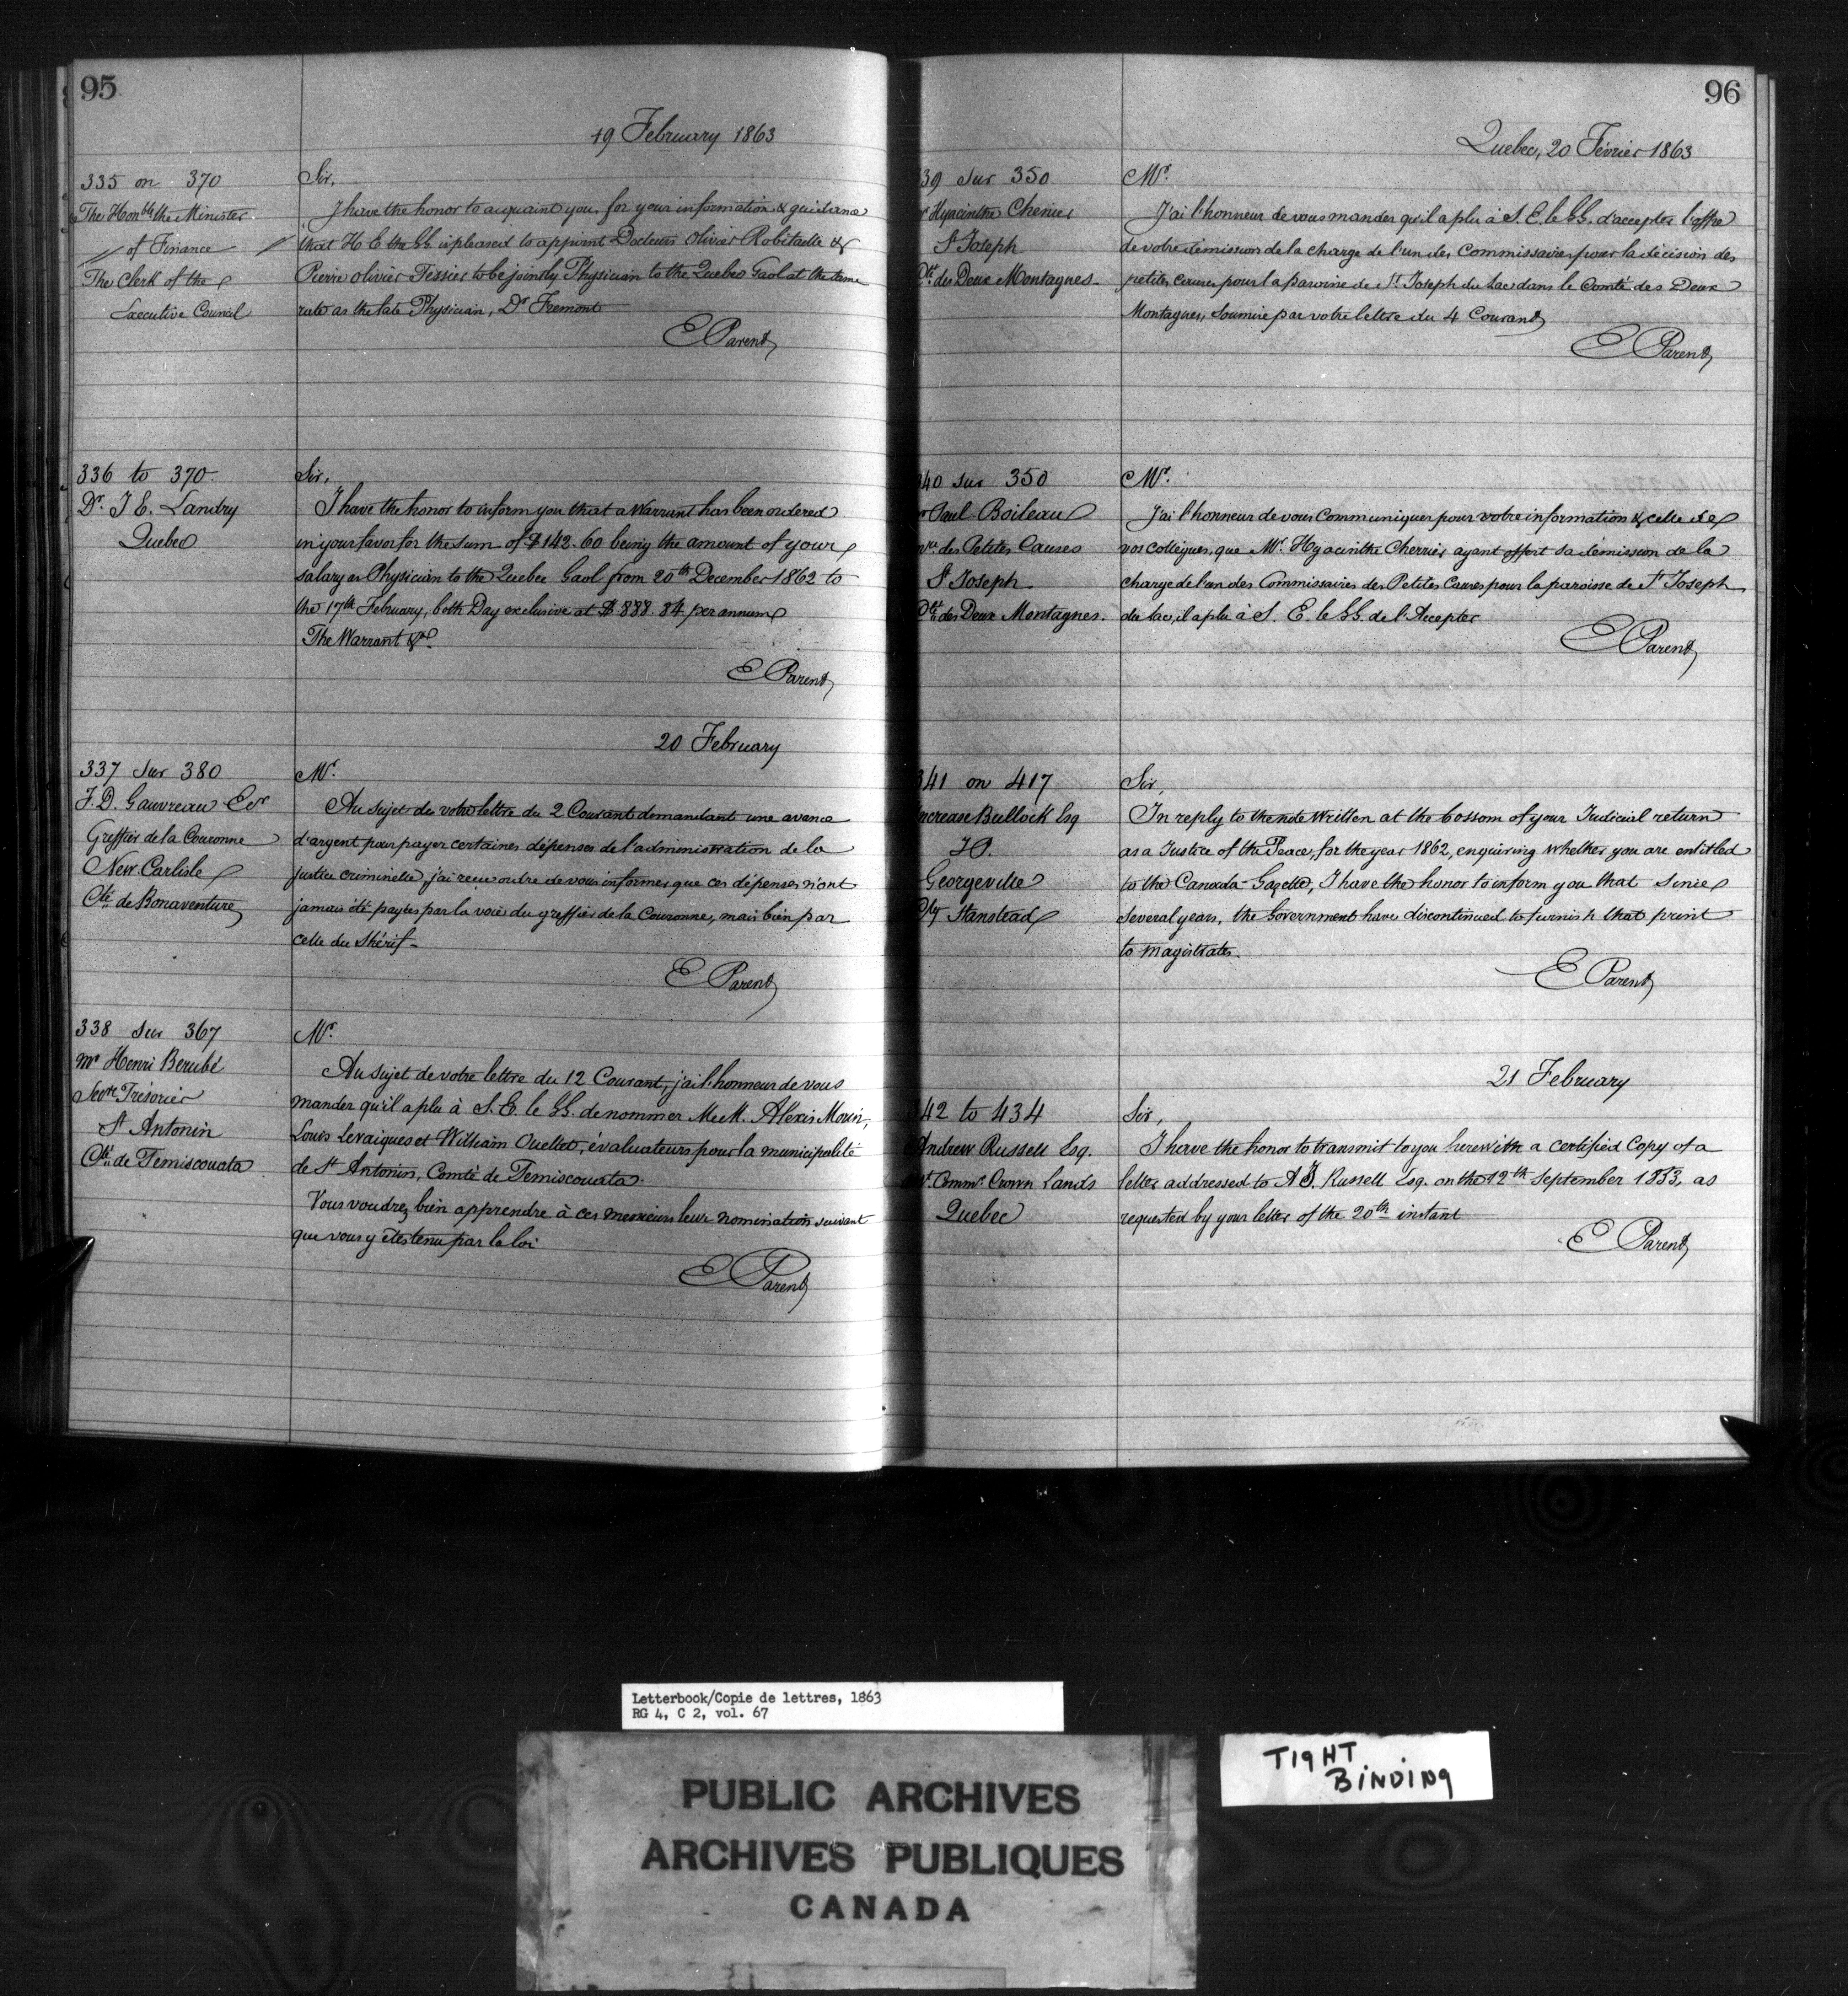 95
19 February 1863
335 on 370
The Honble the Minister
of Finance
The Clerk of the
Executive Council
Sir,
I have the honor to acquaint you, for your information & guidance
that H E the GG is pleased to appoint Docteurs Olivier Robitaille &
Pierre olivier Tessier to be jointly Physician to the Quebec Gaol at the same
rate as the late Physician, Dr Fremont
E Parent
336 to 370
Dr. J E. Landry
Quebec
Sir,
I have the honor to inform you that a Warrant has been ordered
in your favor for the sum of $142.60 being the amount of your
salary as Physician to the Quebec Gaol from 20th December 1862 to
the 17th February, both Day exclusive at $888.84 per annum
The Warrant &c.
E Parent
20 February
337 sur 380
F. D. Gauvreau Ecr
Greffier de la Couronne
New Carlisle
Cté de Bonaventure
Mr.
Au sujet de votre lettre du 2 Courant demandant une avance
d'argent pour payer certaines dépenses de l'administration de la
justice criminelle, j'ai reçu ordre de vous informer que ces dépenses n'ont
jamais été payées par la voie du greffier de la Couronne, mais bien par
celle du Shérif.
E Parent
338 sur 367
Mr Henri Berubé
Secre Trésorier
St Antonin
Cté de Temiscouata
Mr.
Au sujet de votre lettre du 12 Courant, j'ai l'honneur de vous
mander qu'il a plu à S. E. le GG. de nommer MecM. Alexis Morin,
Louis Levaiques et William Ouellet, évaluateurs pour la municipalité
de St Antonin, Comté de Temiscouata.
Vous voudrez bien apprendre à ces messieurs leur nomination suivant
que vous y êtes tenu par la loi
E Parent
96
Quebec, 20 Février 1863
39 sur 350
Hyacinthe Cherrier
St Joseph
Cté des Deux Montagnes
Mr.
J'ai l'honneur de vous mander qu'il a plu à S. E. le GG. d'accepter l'offre
de votre démission de la charge de l'un des Commissaires pour la décision des
petites causes pour la paroisse de St Joseph du Lac dans le Comté des Deux
Montagnes, soumise par votre lettre du 4 Courant
E Parent
340 sur 350
Paul Boileau
des Petites Causes
St Joseph
Cté des Deux Montagnes.
Mr.
J'ai l'honneur de vous Communiquer pour votre information & celle de
vos collègues, que Mr. Hyacinthe Cherrier ayant offert sa démission de la
charge de l'un des Commissaires des Petites Causes pour la paroisse de St Joseph
du Lac, il a plu à S. E. le GG. de l'Accepter
E Parent
341 on 417
Increase Bullock Esq
J.P.
Georgeville
Cty Stanstead
Sir,
In reply to the note Written at the bossom of your Judicial return
as a Justice of the Peace, for the year 1862, enquiring whether you are entitled
to the Canada-Gazette, I have the honor to inform you that since
several years, the Government have discontinued to furnish that print
to magistrates.
E Parent
21 February
342 to 434
Andrew Russell Esq.
Comm. Crown Lands
Quebec
Sir,
I have the honor to transmit to you herewith a certified Copy of a
letter addressed to A J. Russell Esq. on the 12th September 1853, as
requested by your letter of the 20th instant
E Parent
Letterbook/Copie de lettres, 1863
RG 4, C 2, vol. 67
TIGHT
BINDING
PUBLIC ARCHIVES
ARCHIVES PUBLIQUES
CANADA